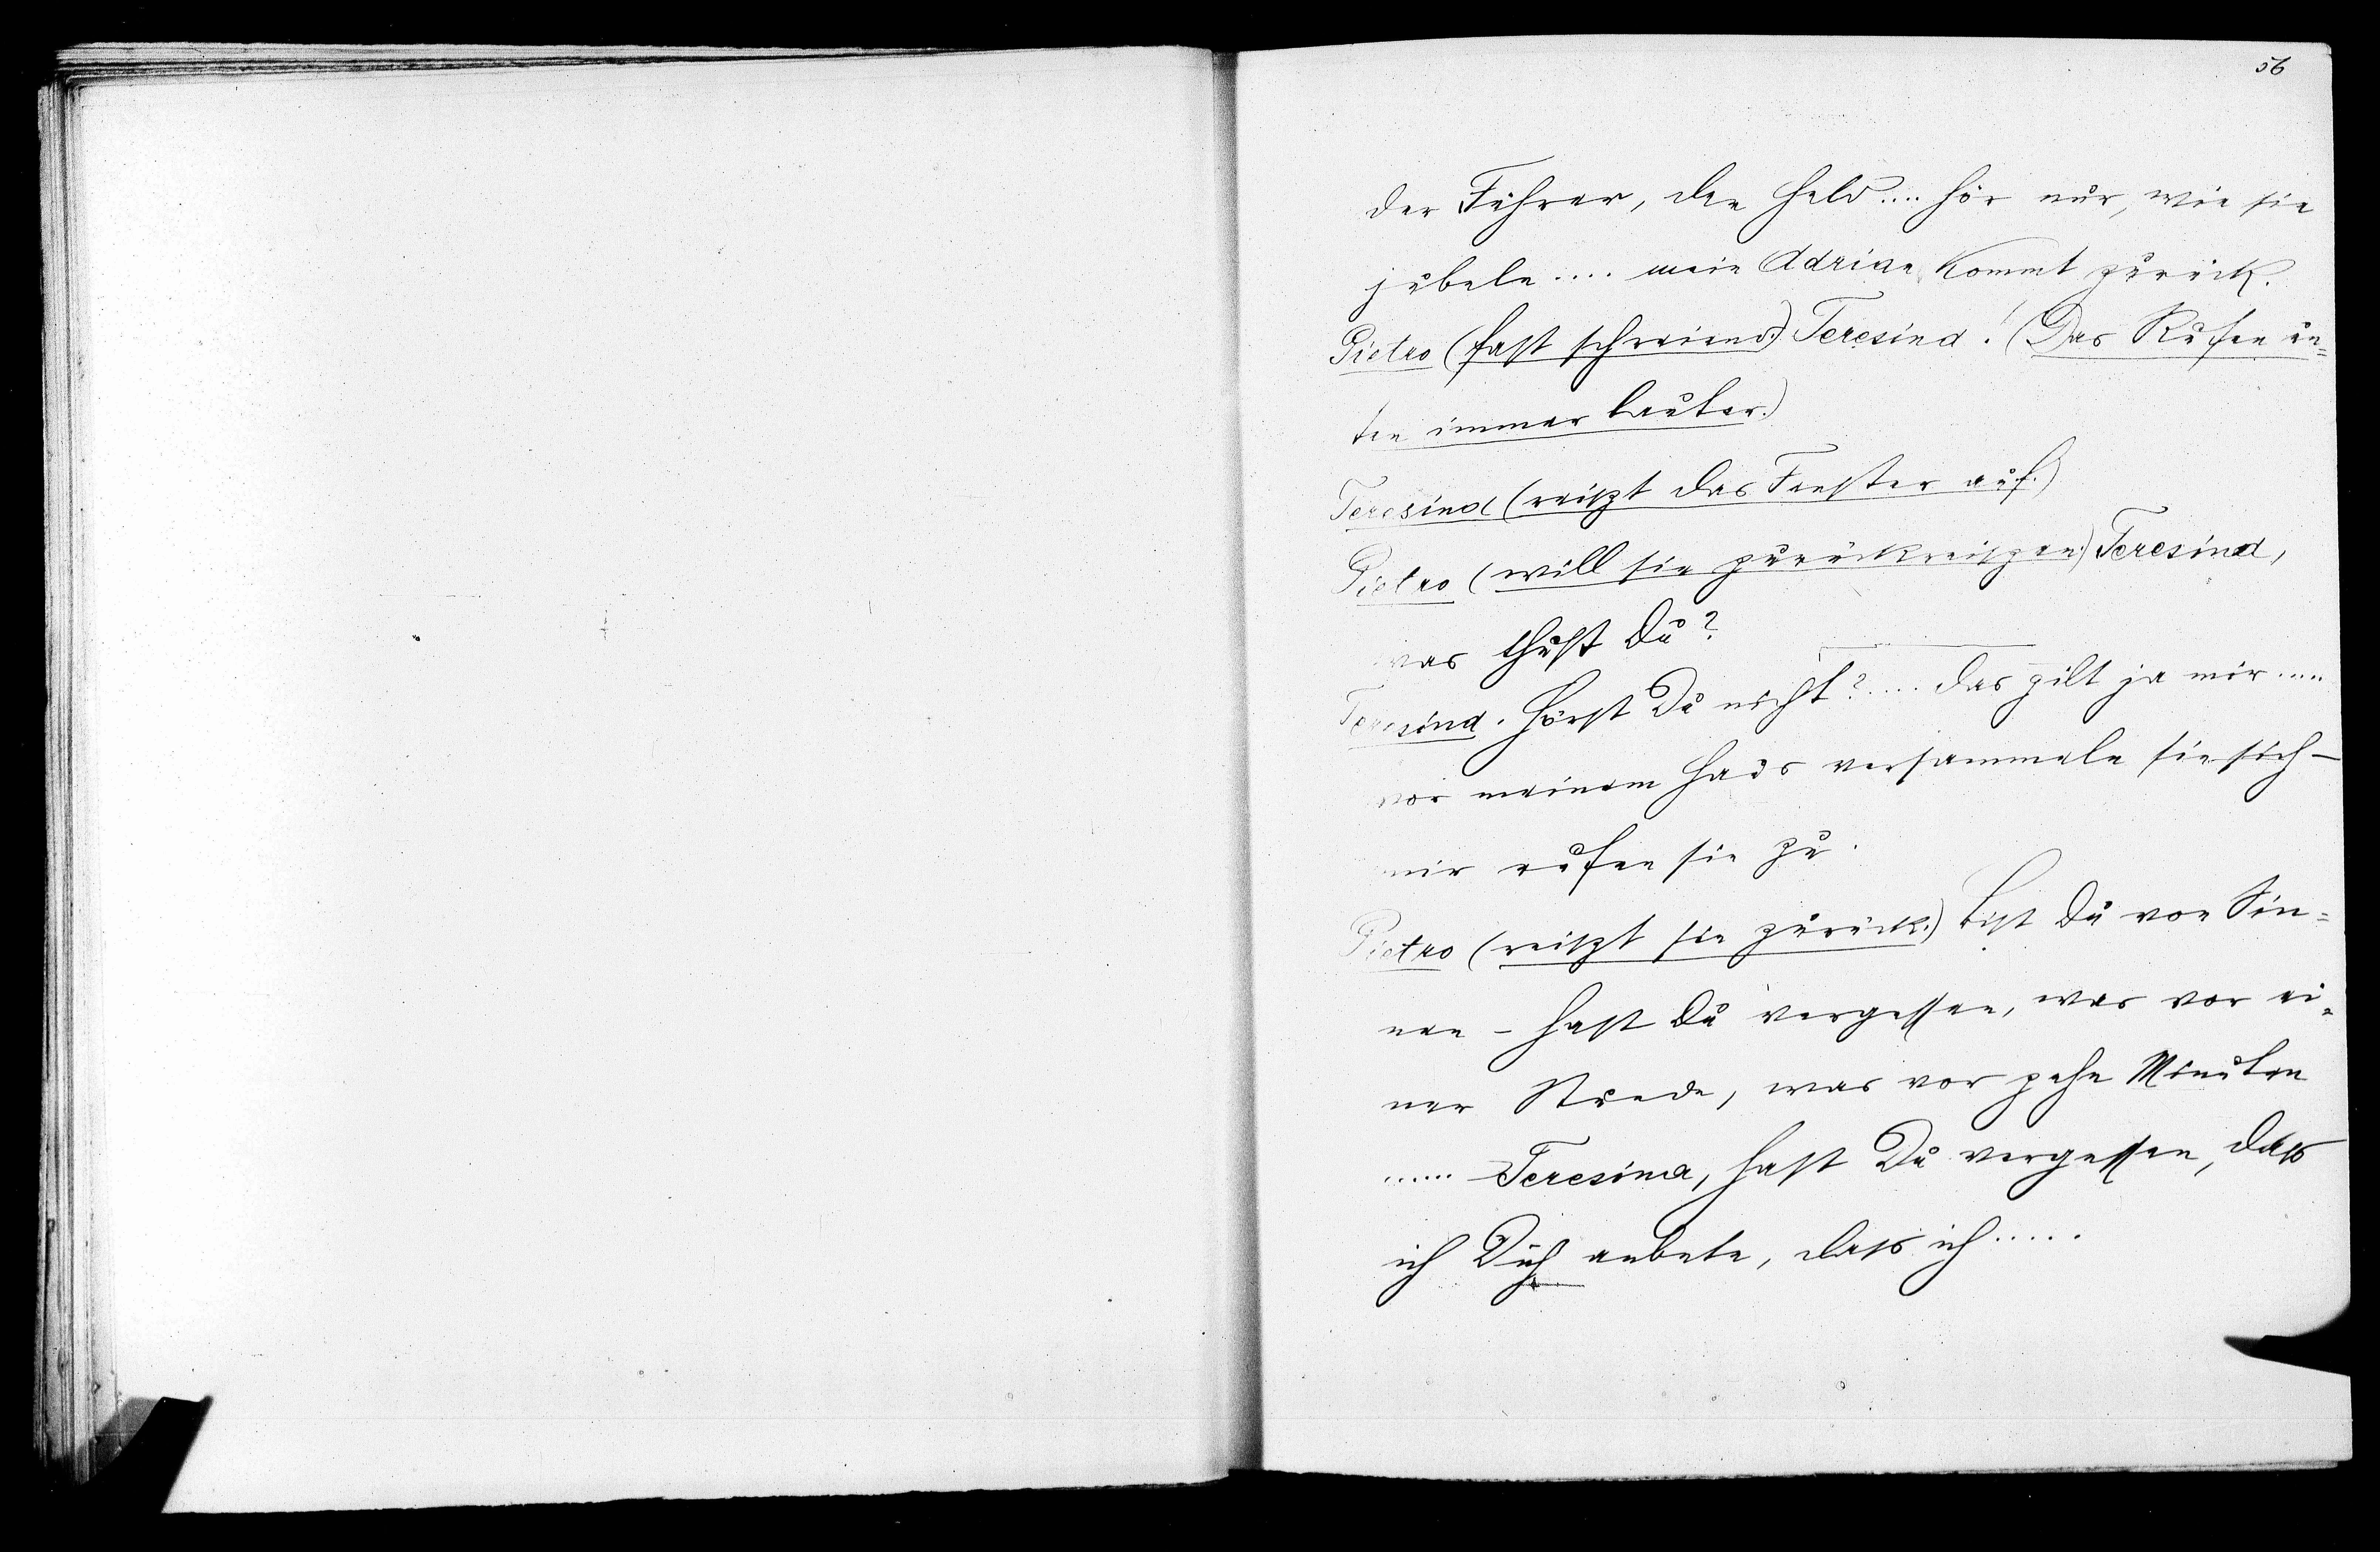 56
der Führer, den Held.... hör nur, wie sie
jubeln.... mein Adrian kommt zurück.
Pietro (fast schreiend.) Teresina! (Das Rufen un=
ten immer lauter.)
Teresina (reißt das Fenster auf.)
Pietro (will sie zurückreißen.) Teresina,
was thust Du?
Teresina. Hörst Du nicht?.... das gilt ja mir....
vor meinem Haus versammeln sie sich –
mir rufen sie zu.
Pietro (reißt sie zurück.) bist Du von Sin=
nen – hast Du vergessen, was vor ei=
ner Stunde, was vor zehn Minuten
...... Teresina, hast Du vergessen, dass
ich Dich anbete, dass ich.....